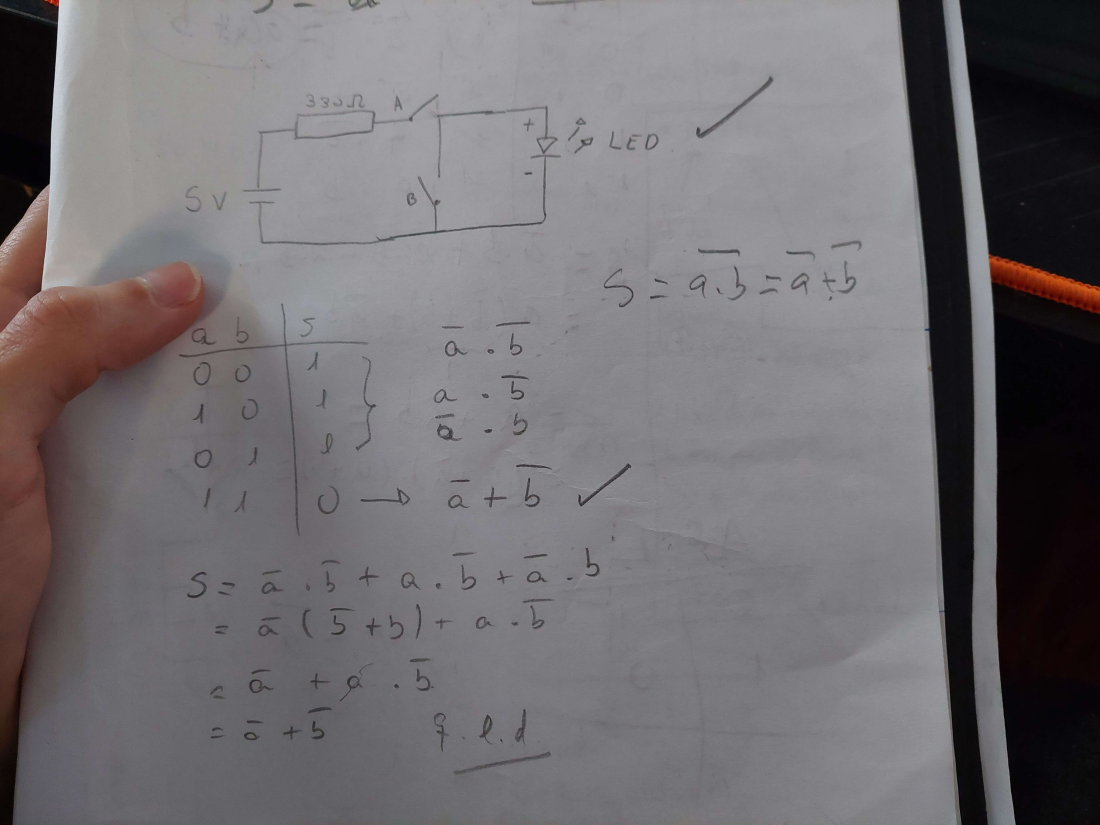 330Ω A
+ LED
5V B -
S = \overline{a.b} = \overline{a} + \overline{b}
a b | S
0 0 | 1 \overline{a} . \overline{b}
1 0 | 1 a . \overline{b}
0 1 | 1 \overline{a} . b
1 1 | 0 → \overline{a} + \overline{b} ✓
S = \overline{a} . \overline{b} + a . \overline{b} + \overline{a} . b
= \overline{a} (\overline{b} + b) + a . \overline{b}
= \overline{a} + a . \overline{b}
= \overline{a} + \overline{b} q.e.d